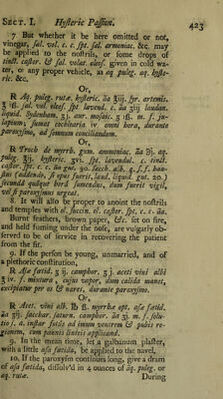 SECT. I. Hysteric Passion. 423
7 But whether it be here omitted or not,
vinegar, sal. vol. c. c. spt. sal. armoniac. &c. may
be applied to the nostrils, or some drops of
tinct. castor. & sal. volat. oleos. given in cold wa-
ter, or any proper vehicle, as aq. puleg. aq. hyste-
ric. &c.
Or,
℞ Aq. puleg. rutæ, hysteric. āā ʒiij. syr. artemis.
liquid. Sydenham. m. f.
julapium; sumat cochlearia omni hora, durante
paroxysmo, ad somnum conciliandum.
Or,
℞ Troch de myrrh. gum. ammoniac.
puleg. hysteric. spt. lavend. c. tinct.
castor. spt. c. c.
secundâ quâque horâ sumendus, dum fuerit vigil,
vel si paroxysmus urgeat.
8. It will also be proper to anoint the nostrils
and temples with ol. succin. vel castor. spt. c. c. āā.
Burnt feathers, brown paper, &c. set on fire,
and held fuming under the nose, are vulgarly ob-
served to be of service in recovering the patient
from the fit.
9. If the person be young, unmarried, and of
a plethoric constitution,
℞ Asæ fœtid. ʒ ij. camphor. ʒ j. aceti vini albi
℥ iv. f. mixtura, cujus vapor, dum calida manet,
excipiatur per os & nares, durante paroxysmo.
Or,
℞ Acet. vini alb. ℔ ß. myrrhæ opt. asæ fœtid.
āā ʒij. sacchar. saturn. camphor. āā ʒi. m. f. solu-
tio; a. instar fotus ad imum ventrem & pubis re-
gionem, cum pannis linteis applicand.
9. In the mean time, let a galbanum plaster,
with a little asa fœtida, be applied to the navel,
10. If the paroxysm continues long, give a dram
of asa fœtida, dissolv'd in 4 ounces of aq. puleg. or
aq. rutæ. During